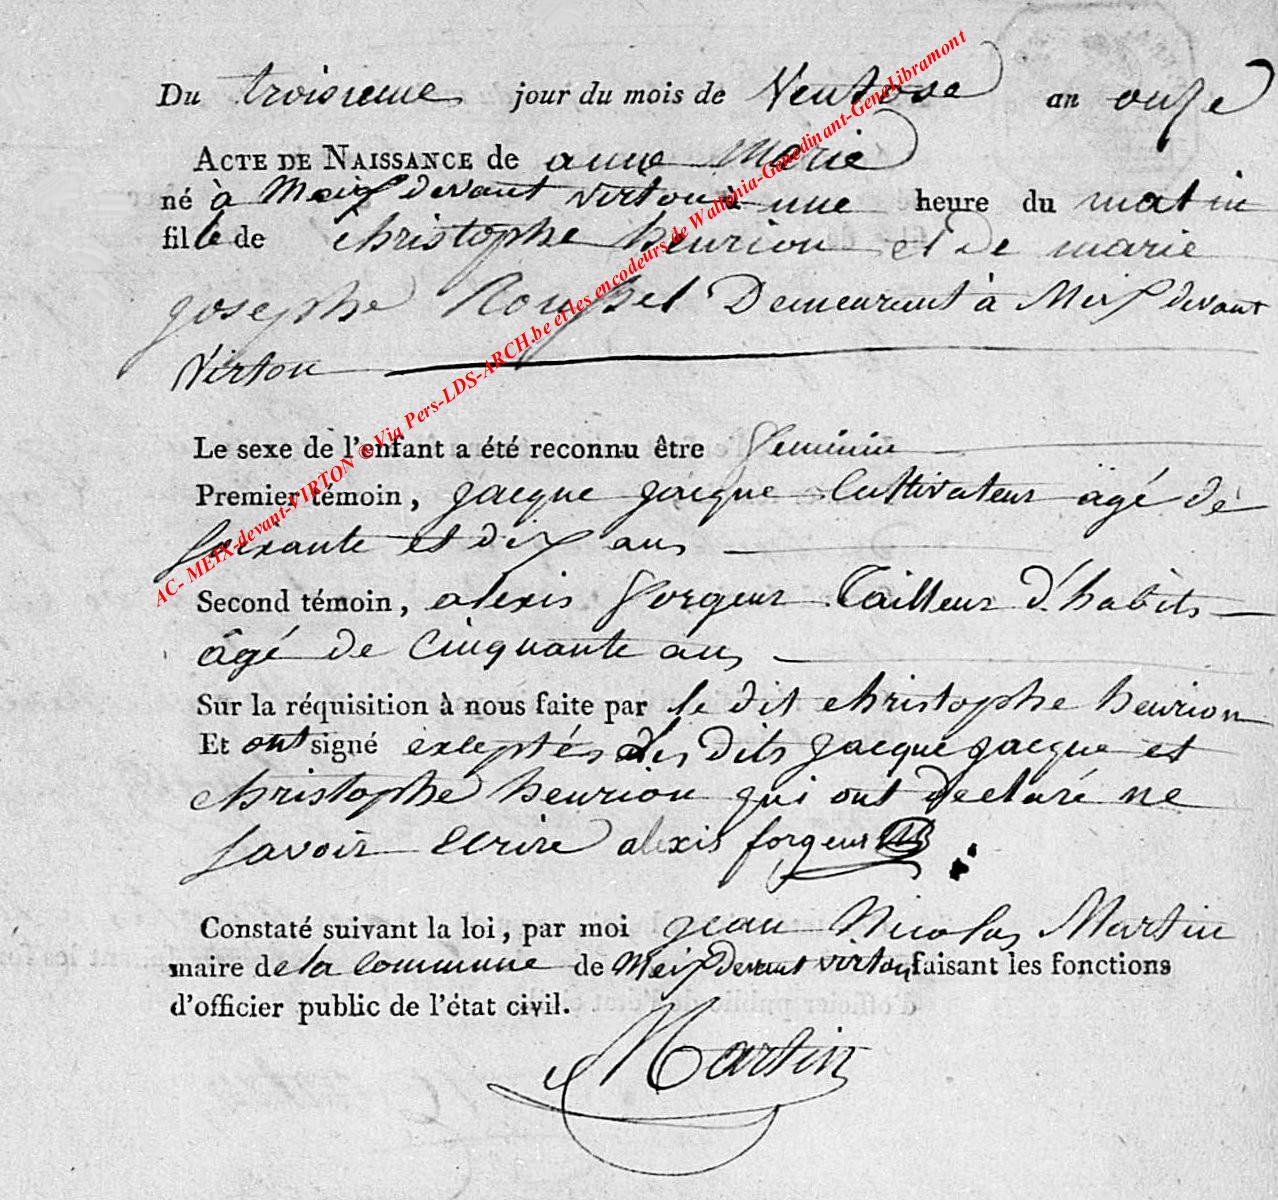 Du troisieme jour du mois de Ventose an onze
ACTE DE NAISSANCE de anne marie
né à Meix devant virton à une heure du matin
fille de christophe henrion et De marie
josephe Roussel Demeurant à Meix devant
Virton
Le sexe de l'enfant a été reconnu être feminin
Premier témoin, jacque jacque Cultivateur âgé de
soixante et dix ans
Second témoin, alexis forgeur Tailleur d'habits
âgé de Cinquante ans
Sur la réquisition à nous faite par le dit christophe henrion
Et ont signé exceptés les Dits jacque jacque et
christophe henrion qui ont Declaré ne
savoir Ecrire alexis forgeur
Constaté suivant la loi, par moi jean Nicolas Martin
maire de la Commune de Meix Devant virton faisant les fonctions
d'officier public de l'état civil.
Martin
AC- MEIX-devant-VIRTON © Via Pers-LDS-ARCH.be et les encodeurs de Wallonia-Genedinant-GeneLibramont